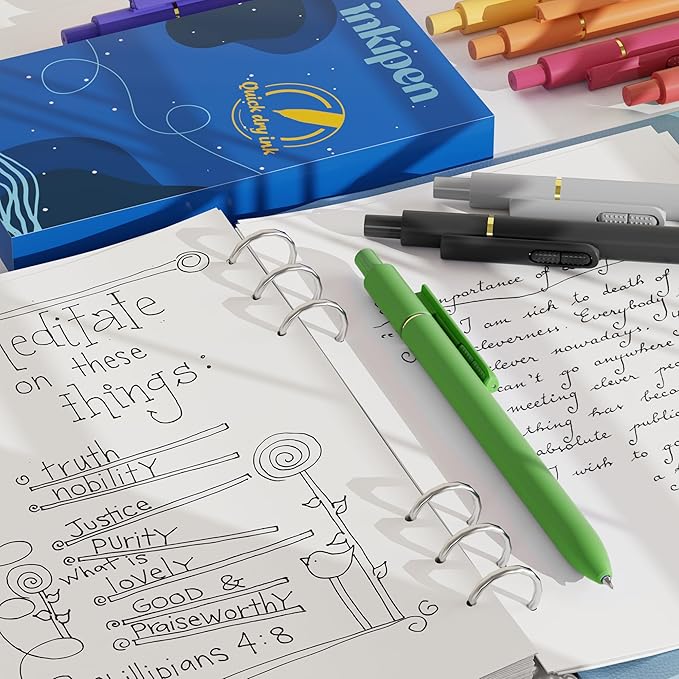 inkipen
Quick dry ink
editate
on these
things:
truth
nobility
Justice
Purity
what is
lovely
Good &
Praiseworthy
hillipians 4:8
mportance of
I am sick to death of
cleverness. Everybody
lever nowadays.
can't go anywhere
meeting clever pe
thing has beco
absolute public
I wish to go